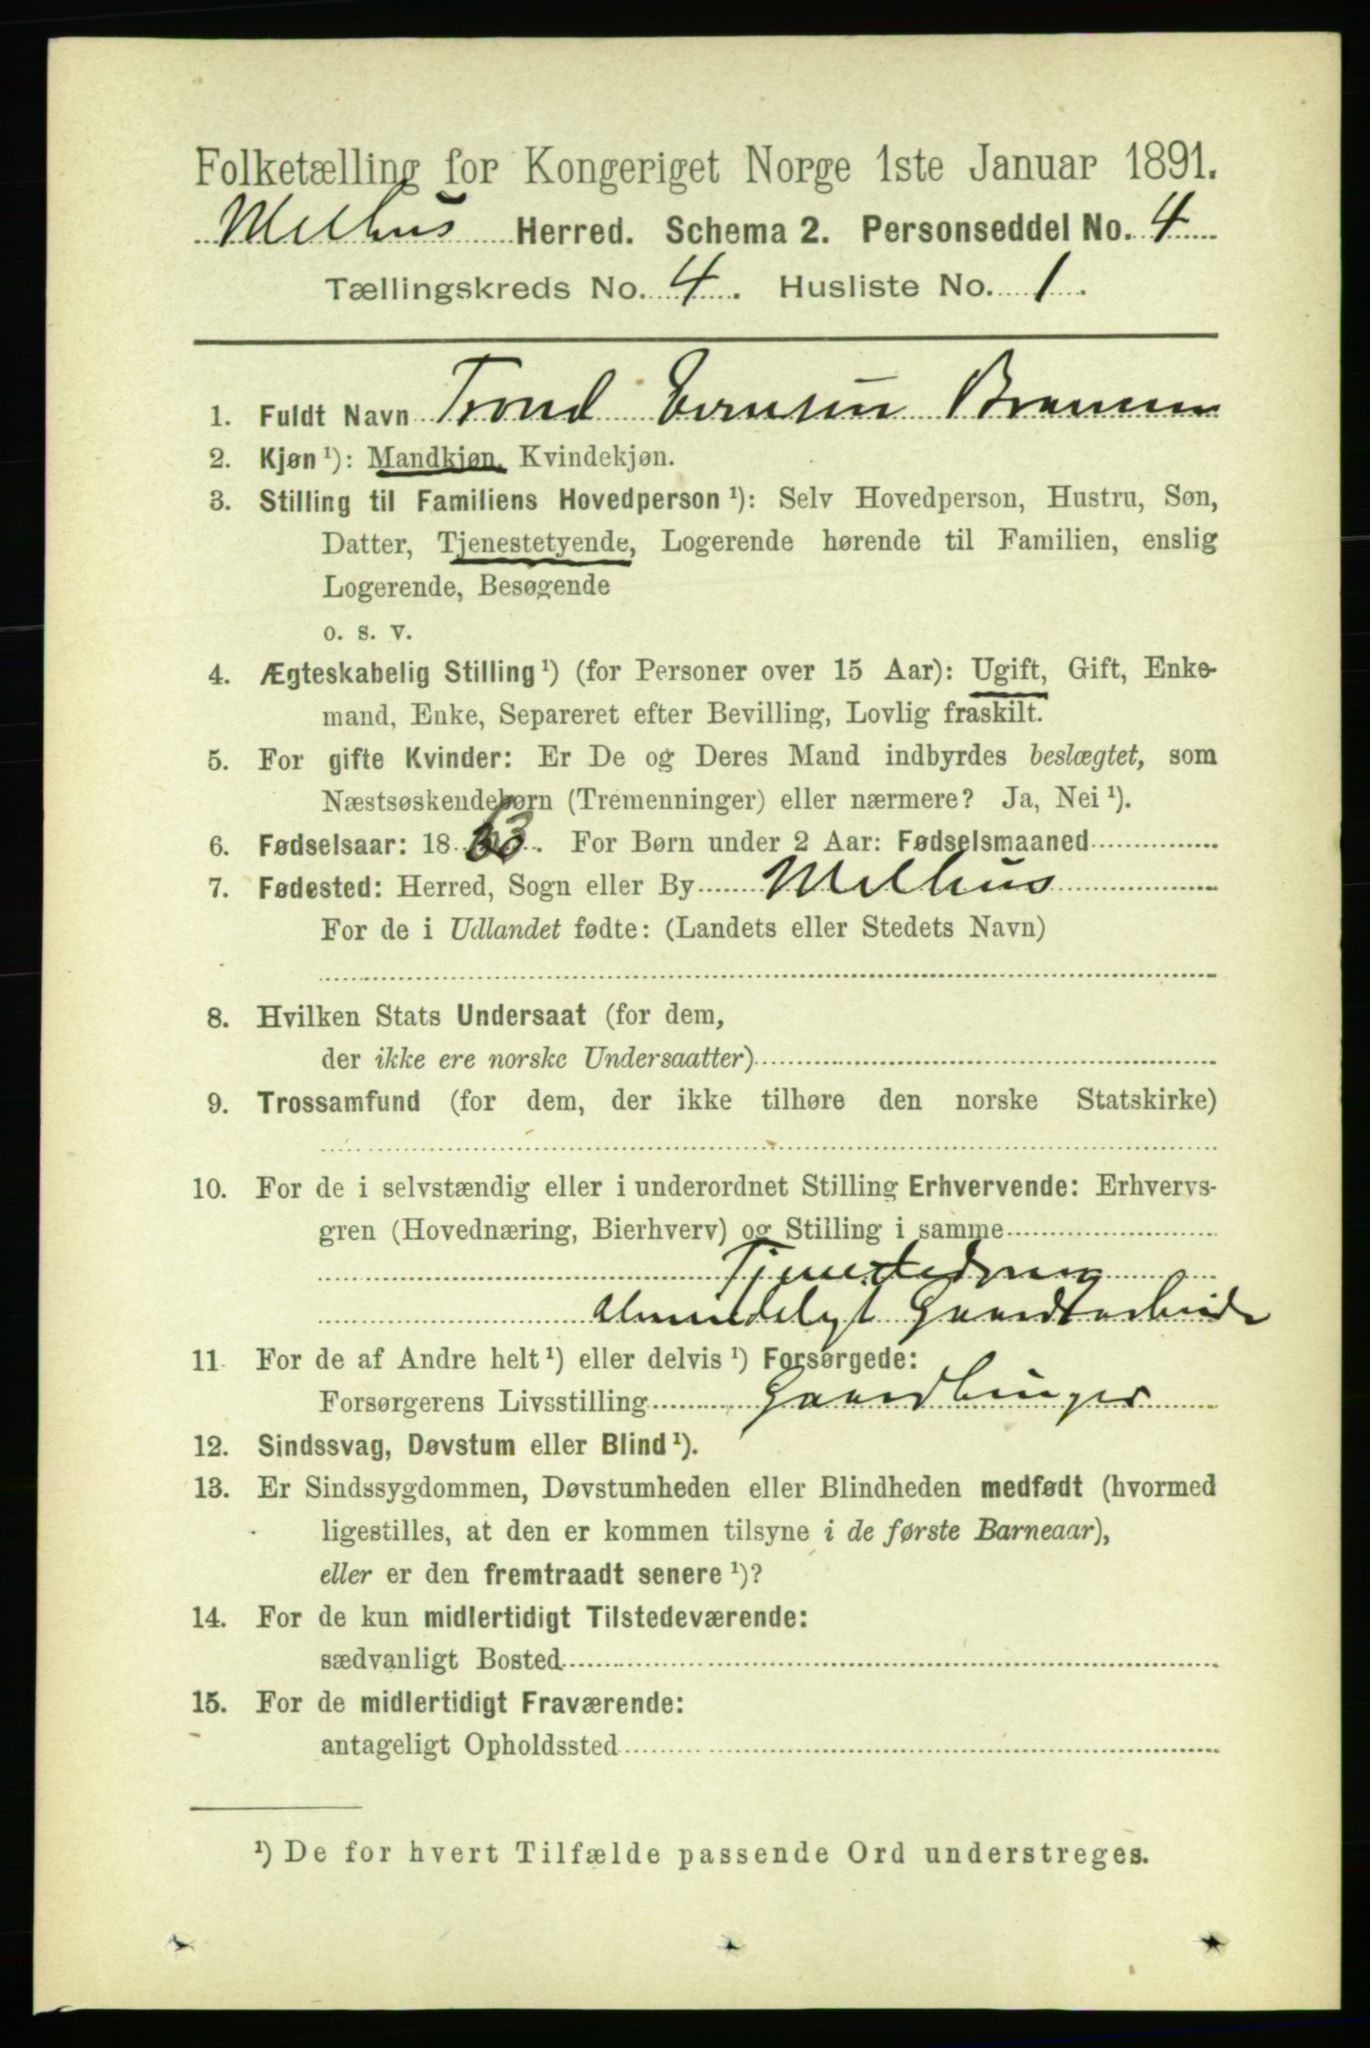 Folketælling for Kongeriget Norge 1ste Januar 1891.
Melhus Herred. Schema 2. Personseddel No. 4
Tællingskreds No. 4. Husliste No. 1.
1. Fuldt Navn Trond Bramsen
2. Kjøn ¹): Mandkjøn, Kvindekjøn.
3. Stilling til Familiens Hovedperson ¹): Selv Hovedperson, Hustru, Søn,
Datter, Tjenestetyende, Logerende hørende til Familien, enslig
Logerende, Besøgende
o. s. v.
4. Ægteskabelig Stilling ¹) (for Personer over 15 Aar): Ugift, Gift, Enke-
mand, Enke, Separeret efter Bevilling, Lovlig fraskilt.
5. For gifte Kvinder: Er De og Deres Mand indbyrdes beslægtet, som
Næstsøskendebørn (Tremenninger) eller nærmere? Ja, Nei ¹).
6. Fødselsaar: 1863. For Børn under 2 Aar: Fødselsmaaned
7. Fødested: Herred, Sogn eller By Melhus
For de i Udlandet fødte: (Landets eller Stedets Navn)
8. Hvilken Stats Undersaat (for dem,
der ikke ere norske Undersaatter)
9. Trossamfund (for dem, der ikke tilhøre den norske Statskirke)
10. For de i selvstændig eller i underordnet Stilling Erhvervende: Erhvervs-
gren (Hovednæring, Bierhverv) og Stilling i samme
Tjenestedreng
almindeligt Gaardsarbeide
11 For de af Andre helt ¹) eller delvis ¹) Forsørgede:
Forsørgerens Livsstilling Gaardbruger
12. Sindssvag, Døvstum eller Blind ¹).
13. Er Sindssygdommen, Døvstumheden eller Blindheden medfødt (hvormed
ligestilles, at den er kommen tilsyne i de første Barneaar),
eller er den fremtraadt senere ¹)?
14. For de kun midlertidigt Tilstedeværende:
sædvanligt Bosted
15. For de midlertidigt Fraværende:
antageligt Opholdssted
¹) De for hvert Tilfælde passende Ord understreges.